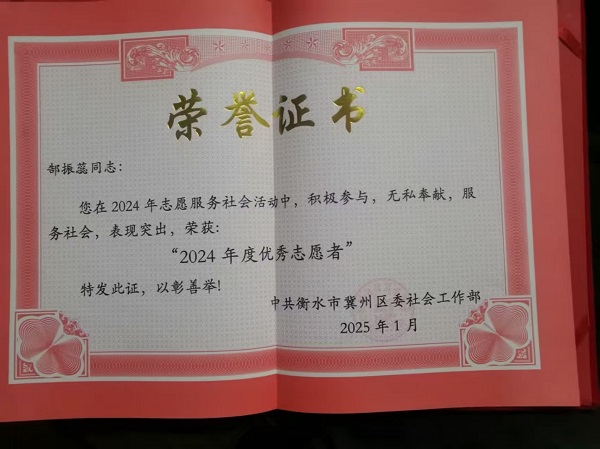 荣誉证书
郜振蕊同志：
您在2024年志愿服务社会活动中，积极参与，无私奉献，服
务社会，表现突出，荣获：
“2024年度优秀志愿者”
特发此证，以彰善举！
中共衡水市冀州区委社会工作部
2025年1月